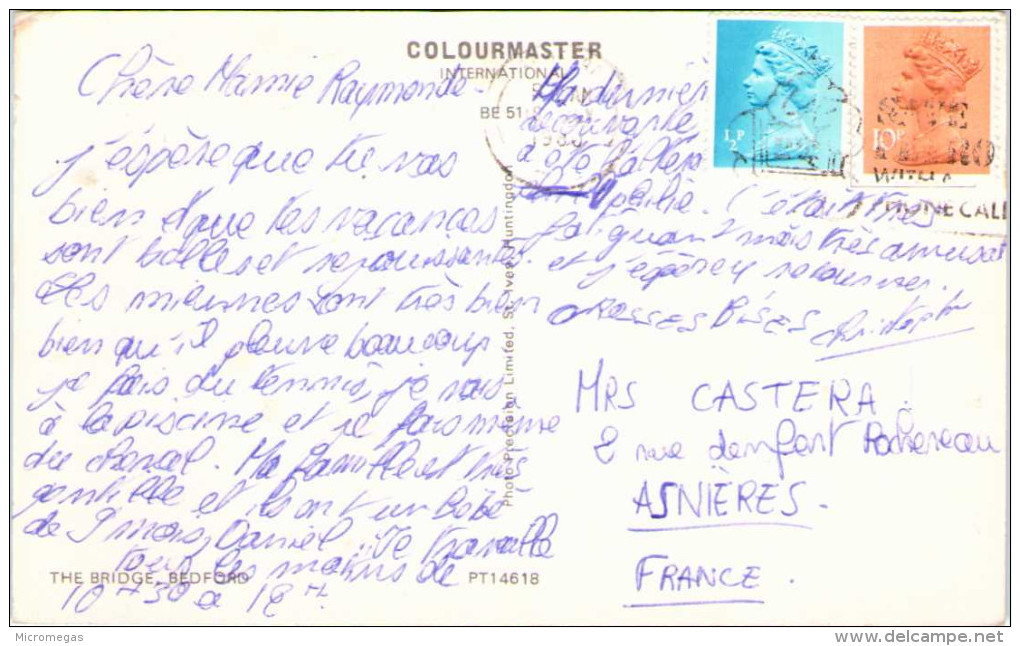 COLOURMASTER
INTERNATIONAL
BE 51
1980
½P
10P
PHONE CALL
Chère Mamie Raymonde -
j'espère que tu vas
bien et que tes vacances
sont belles et reposantes.
Les miennes sont très bien
bien qu'il pleuve beaucoup
je fais du tennis, je vais
à la piscine et je fais même
du cheval. Ma famille est très
gentille et ils ont un bébé
de 9 mois, Daniel. Je travaille
tous les matins de
10H30 à 12H.
Ma dernière
a été
C'était très
fatiguant mais très amusant
et j'espère y retourner.
GROSSES BISES Christophe
MRS CASTERA.
2 rue denfert Rochereau
ASNIÈRES.
FRANCE.
Photo Precision Limited, St. Ives, Huntingdon
THE BRIDGE, BEDFORD
PT14618
Micromegas
www.delcampe.net